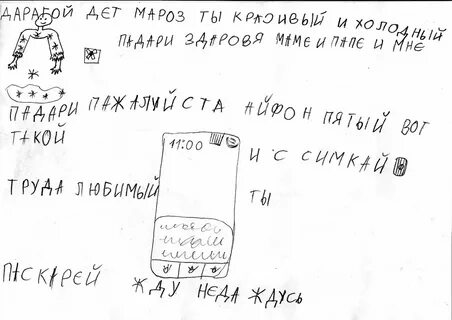 ДАРАГОЙ ДЕТ МАРОЗ ТЫ КРАСИВЫЙ И ХОЛОДНЫЙ
ПАДАРИ ЗДАРОВЯ МАМЕ И ПАПЕ И МНЕ
ПАДАРИ ПАЖАЛУЙСТА АЙФОН ПЯТЫЙ ВОТ
ТАКОЙ
11:00
И С СИМКАЙ
ТРУДА ЛЮБИМЫЙ ТЫ
ПАСКАРЕЙ ЖДУ НЕДАЖДУСЬ